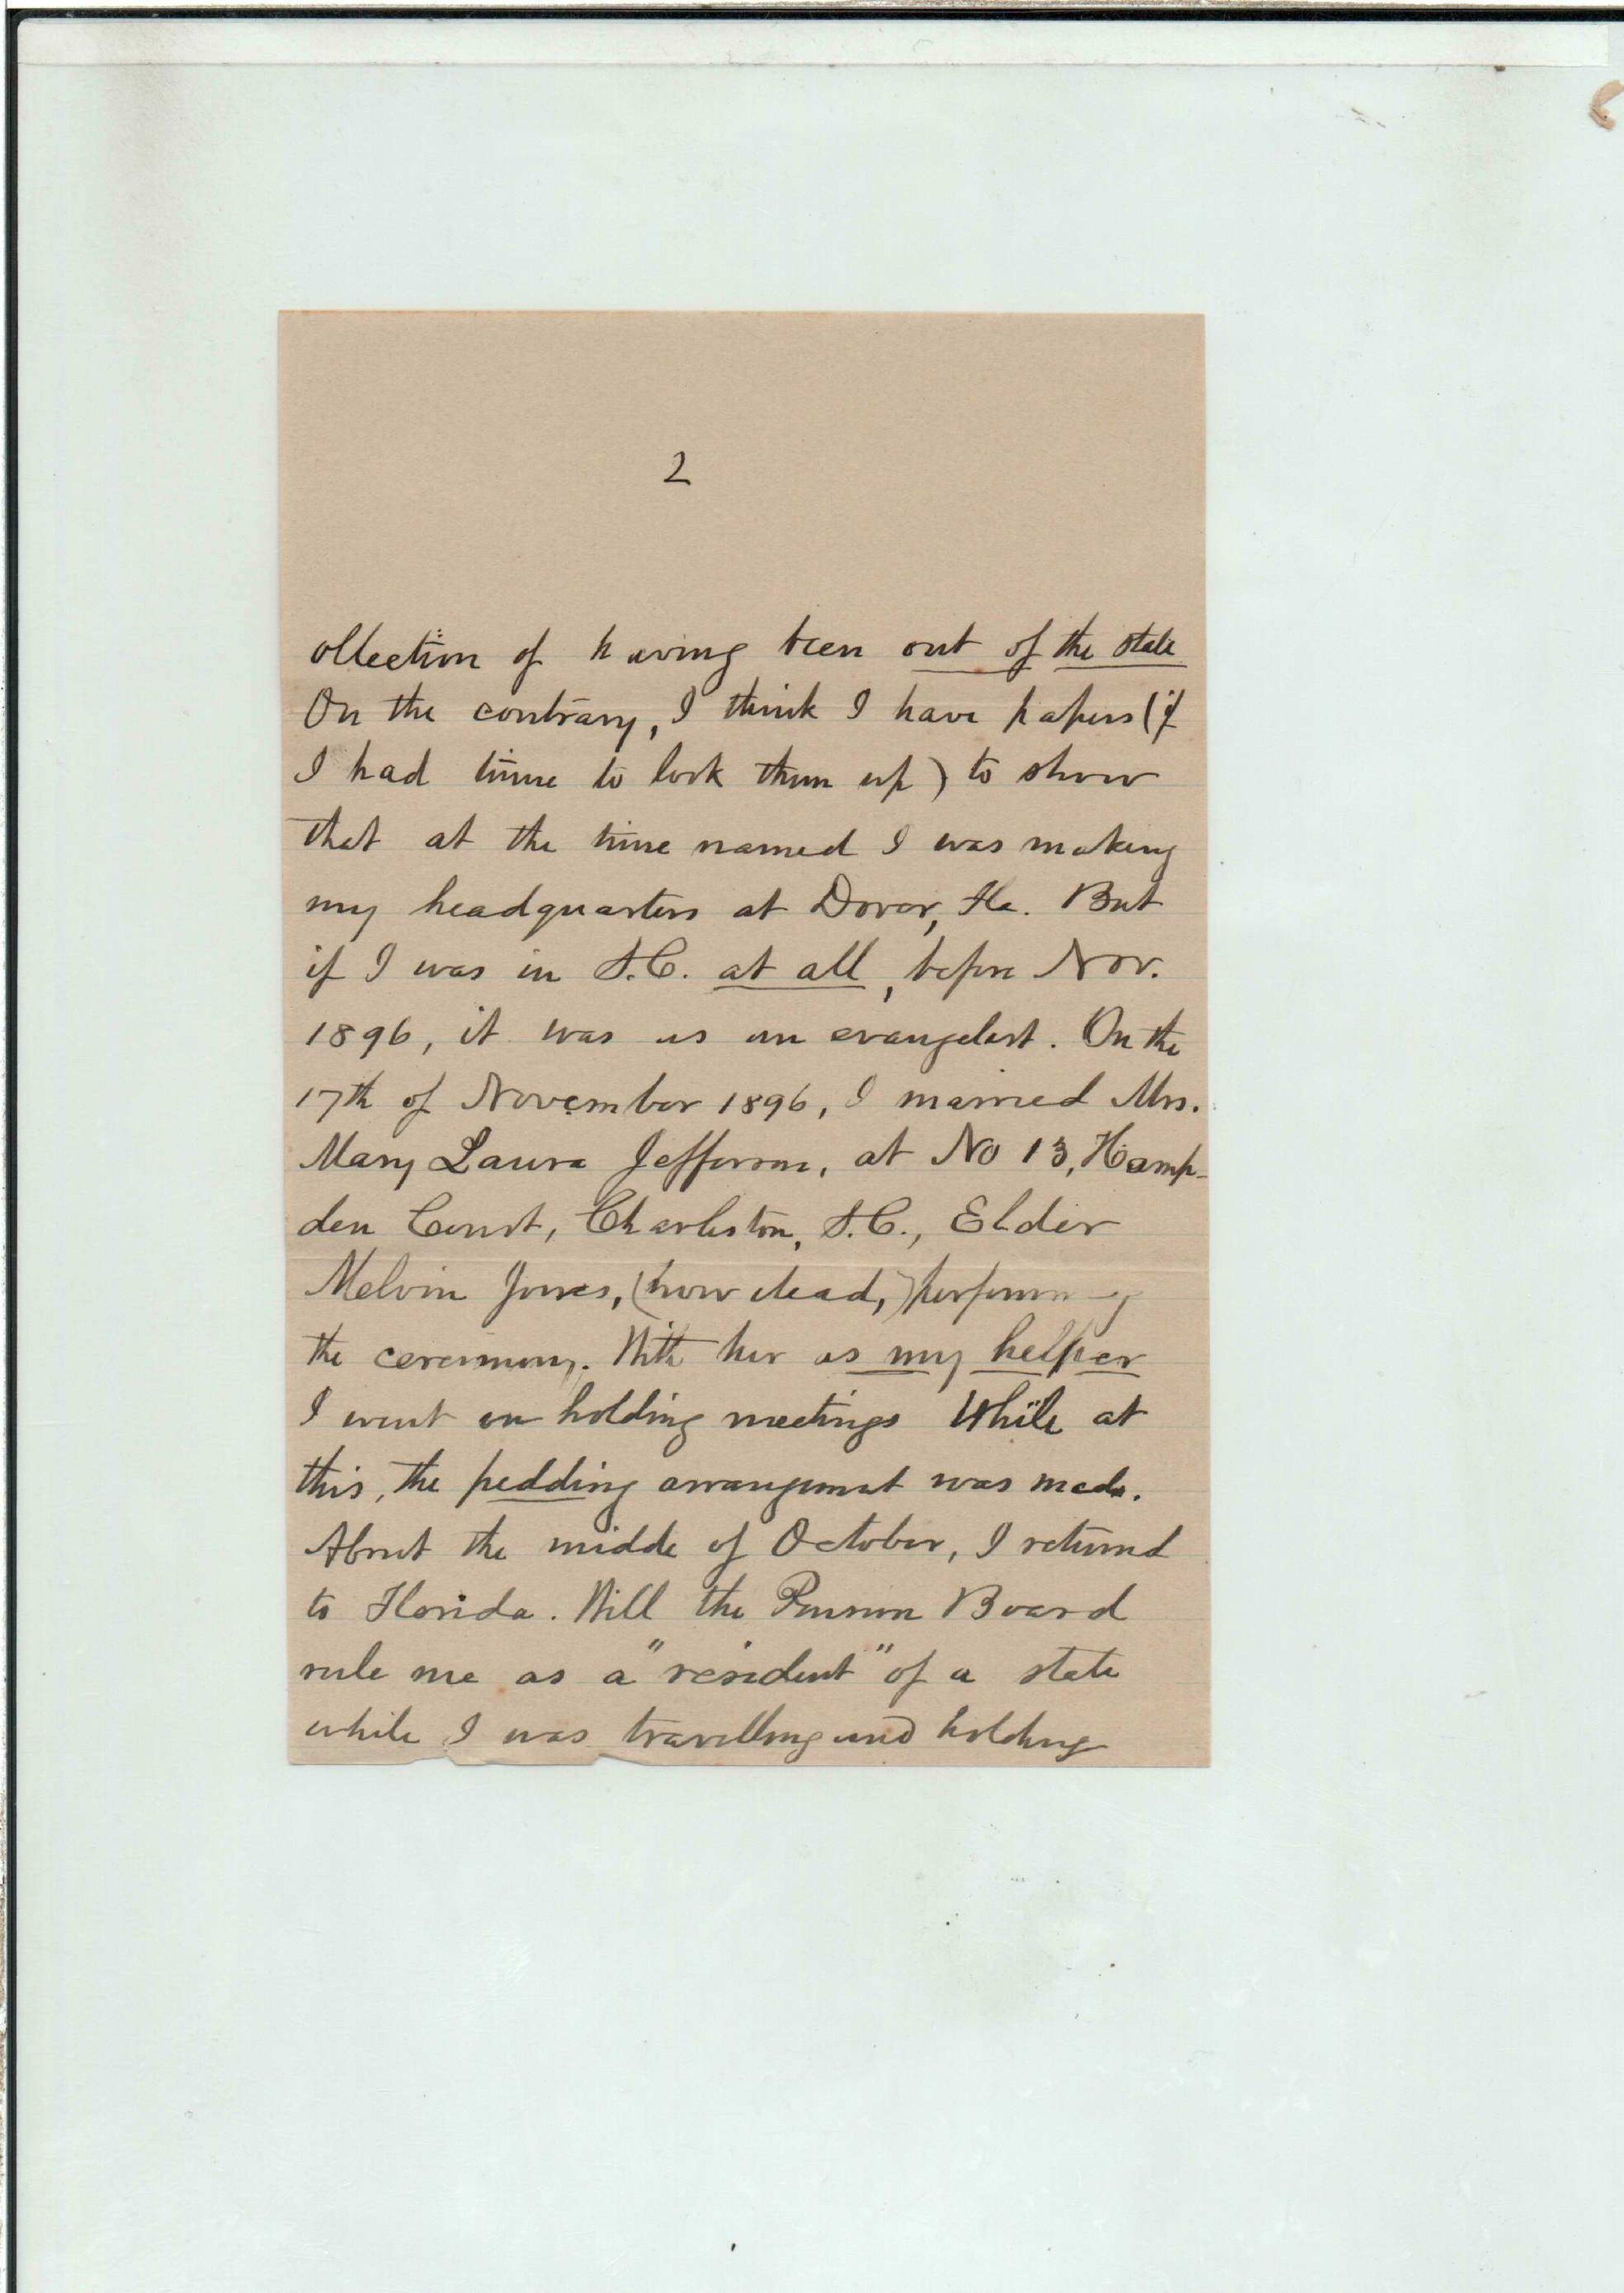 2
ollection of having been out of the state
On the contrary, I think I have papers (if
I had time to look them up) to show
that at the time named I was making
my headquarters at Dover, Fla. But
if I was in S.C. at all, before Nov.
1896, it was as an evangelist. On the
17th of November 1896, I married Mrs.
Mary Laura Jefferson, at No 13, Hamp-
den Court, Charleston, S.C., Elder
Melvin Jones, (now dead,) performing
the ceremony. With her as my helper
I went on holding meetings While at
this, the pedding arrangement was made.
About the midde of October, I returned
to Florida. Will the Pension Board
rule me as a "resident" of a state
while I was travelling and holding